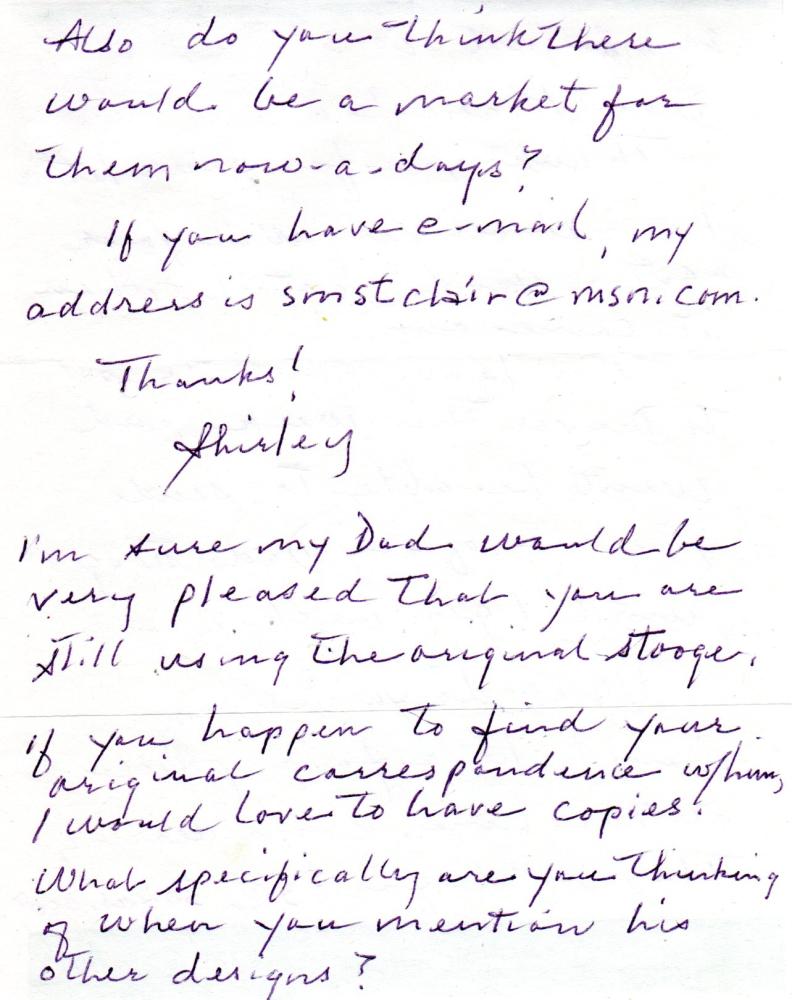 Also do you think there
would be a market for
them now-a-days?
If you have e-mail, my
address is smstclair@msn.com.
Thanks!
Shirley
I'm sure my Dad would be
very pleased that you are
still using the original stooge.
If you happen to find your
original correspondence w/him,
I would love to have copies.
What specifically are you thinking
of when you mention his
other designs?